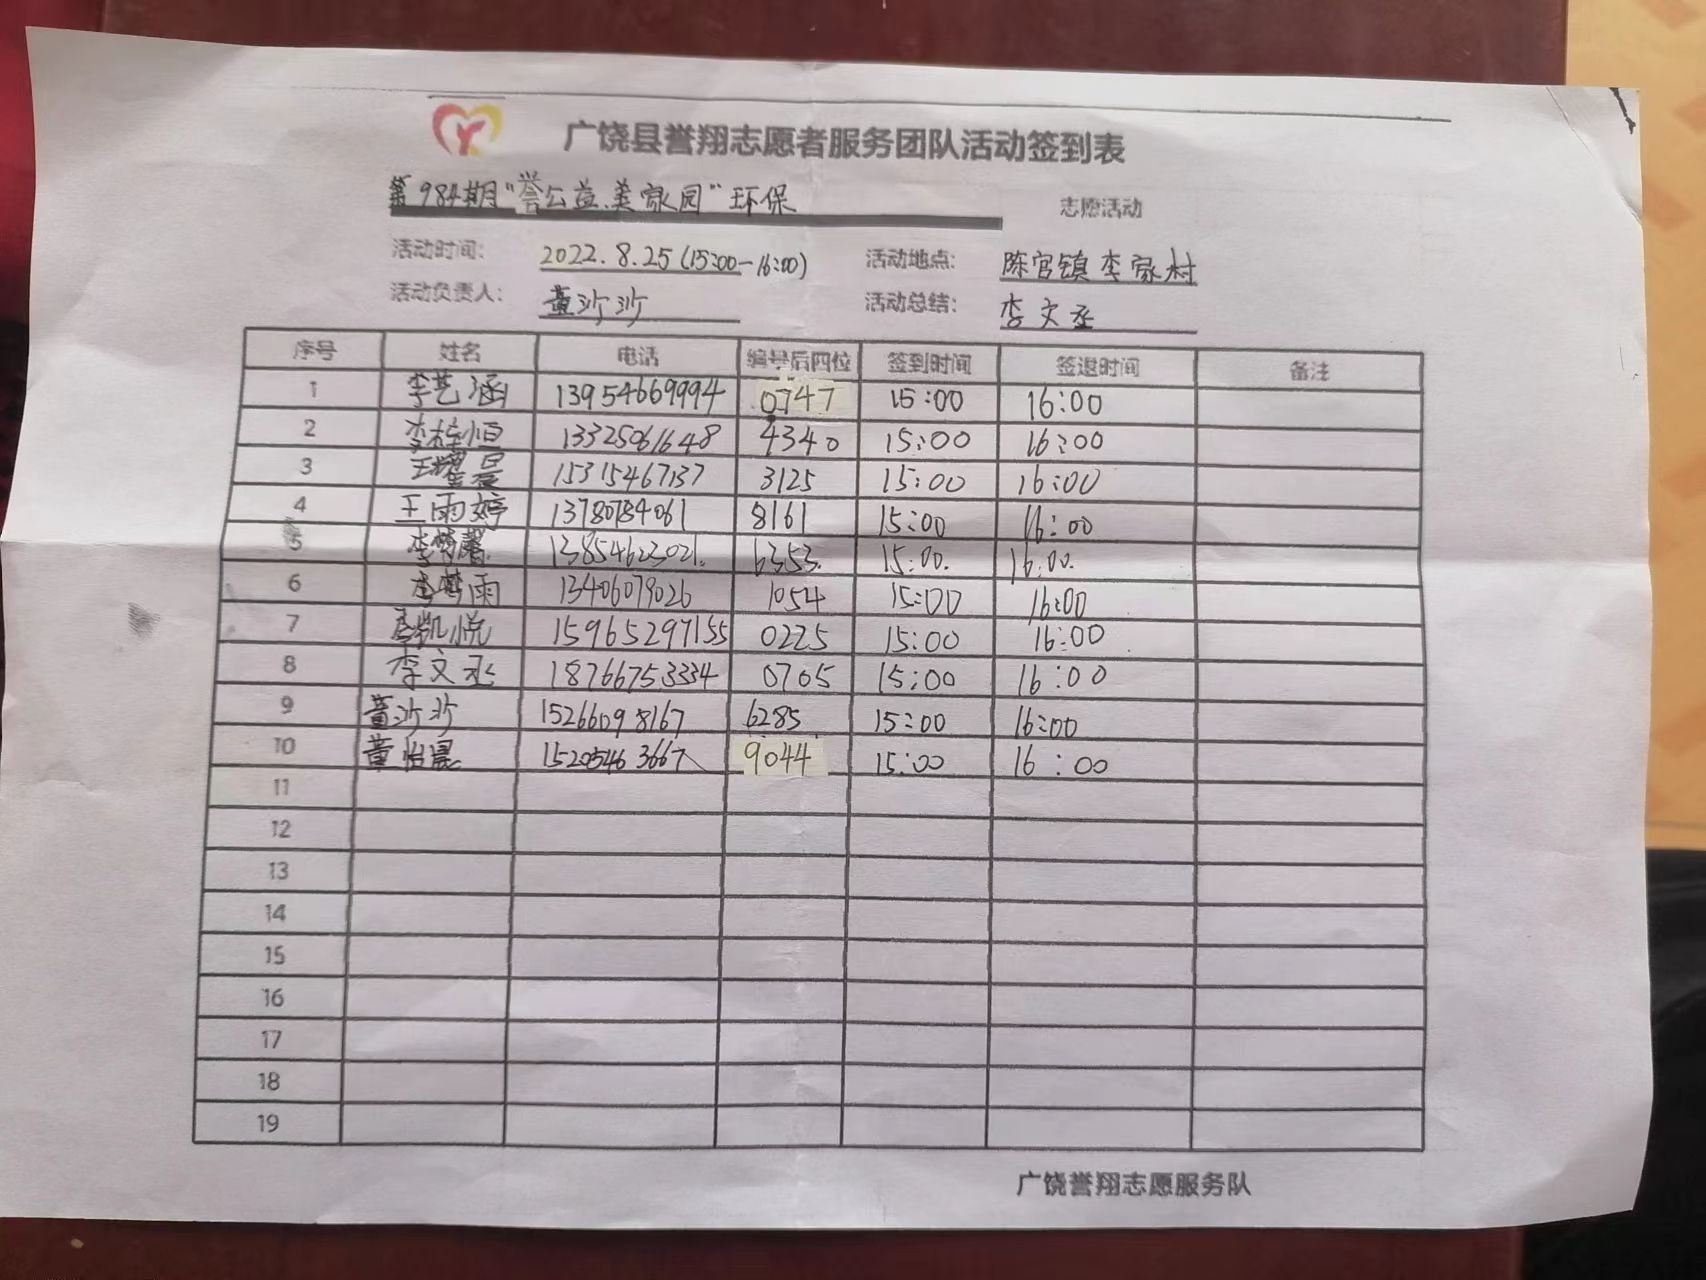 广饶县誉翔志愿者服务团队活动签到表
第984期“誉公益.美家园”环保 志愿活动
活动时间： 2022.8.25(15:00-16:00) 活动地点： 陈官镇李家村
活动负责人： 董沙沙 活动总结： 李文丞
序号 姓名 电话 编号后四位 签到时间 签退时间 备注
1 李艺涵 13954669994 0747 15:00 16:00
2 13325061648 4340 15:00 16:00
3 王耀昙 15315467137 3125 15:00 16:00
4 王雨婷 13780784061 8161 15:00 16:00
5 李梦馨 13854623021. 6353. 15:00. 16:00.
6 李梦雨 13406079026 1054 15:00 16:00
7 李凯悦 15965297155 0225 15:00 16:00
8 李文丞 18766753334 0765 15:00 16:00
9 董沙沙 15266098167 6285 15:00 16:00
10 董怡晨 15205463667 9044 15:00 16:00
11
12
13
14
15
16
17
18
19
广饶誉翔志愿服务队